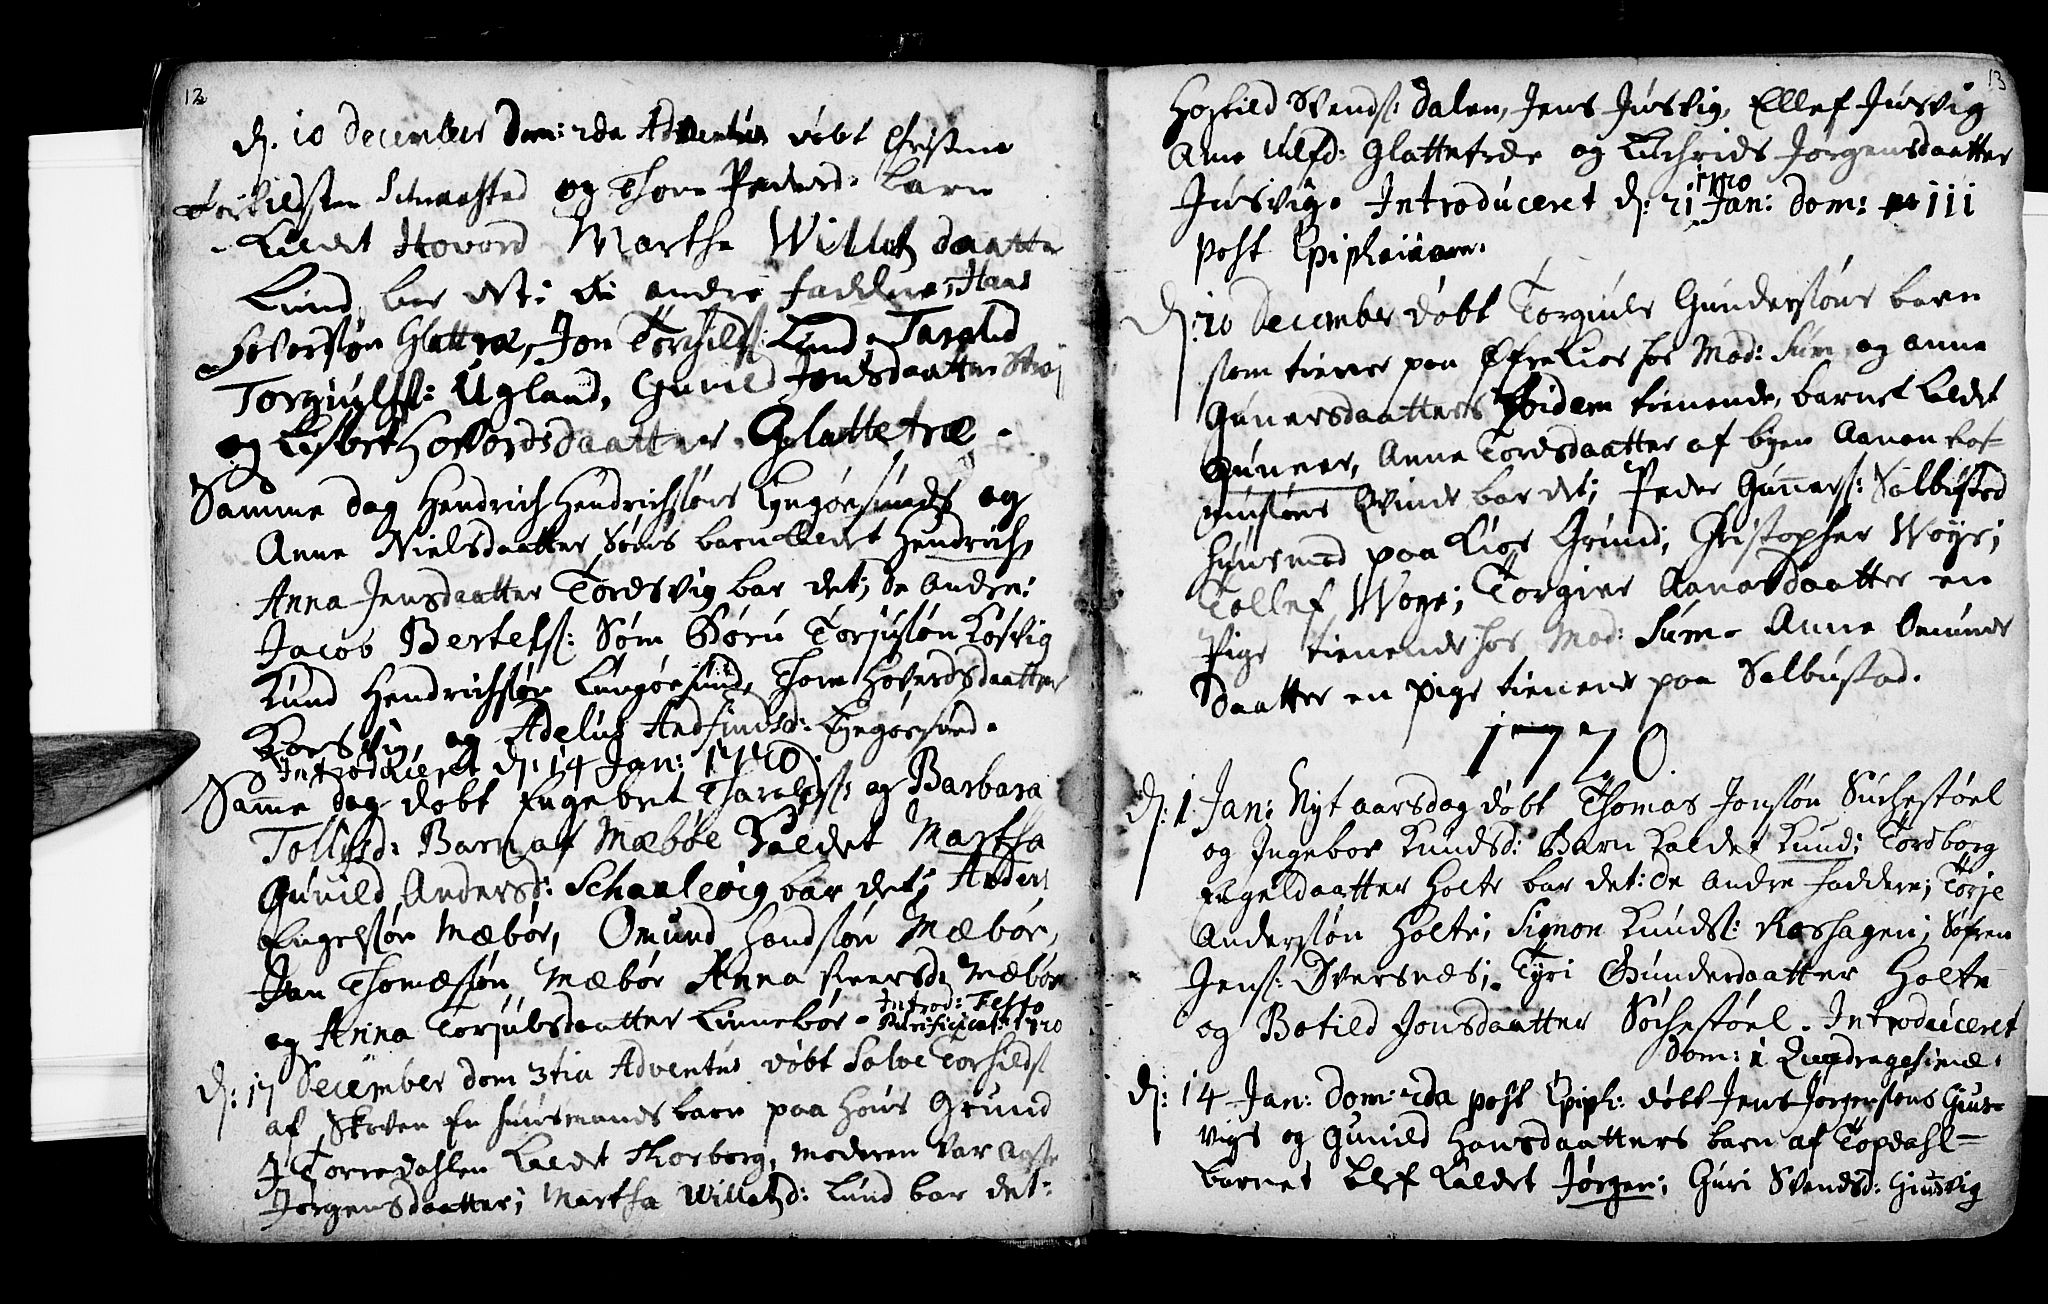 12
d. 10 December Dom: 2da Adventus døbt Christine
og Thore Pedersd: barn
kaldet Hovord Martha Willatz daatter
Lund bar det; De andre faddere; Hans
Hoversøn Glattræ, Jon Torkilds: Lund Tarald
Torgiulss: Ugland, Gunild Jonsdaatter
og Lisbet Hovordsdaatter Glattetræ.
Samme dag Hendrich Hendrichsøns Lyngørsunds og
Anne Nielsdaatter Søms barn kaldet Hendrich,
Anna Jensdaatter Tordsvig bar det; de andre:
Jacob Bertels: Søm Torjusøn Kosvig
Knud Hendrichsøn Lyngørsund, Thore Hoverdsdaatter
Korsvig, og Adelus Andfindsd: Lyngørsund.
Introduceret d: 14 Jan: 1720.
Samme dag døbt Engebret Taralds: og Barbara
Tollefsd: Barn af Mæbøe kaldet Martha
Gunild Andersd: Schaalevig bar det; Anders
Engelsøn Mæbøe, Omund Hansøn Mæbøe,
Jan Thomæsøn Mæbøe Anna Reersd: Mæbøe
og Anna Torjulsdaatter Linnebøe. Introd: Festo
Purificat: 1720
d: 17 December dom 3tia Adventus døbt Salve Torkilds:
af Skoven En huusmands barn paa Høus Grund
i Torredahlen kaldet Thorborg, moderen var
Jørgensdaatter; Martha Willatzd: Lund bar det:
13
Svends: Dalen, Jens Jusvig, Ellef Jusvig
Anne Glattetræe og Jørgensdaatter
Jusvig. Introduceret d: 21 Jan: 1720 dom: III
post Epiphaniam.
d: 10 December døbt Torgiuls Gundersøns barn
som tiener paa Øfre Lior hos Mad: Sum og Anne
Gunersdaatters Ibidem tienende, barnet kaldet
Gunner, Anne Tordsdaatter af byen Aanon
Qvinde bar det; Peder Gunners: Salbustad
huusmand paa Lior Grund; Christopher Woye;
Tollef Woye; Torgier Aanasdaatter en
Pige tienende hos Mad: Sum. Anne Omunds
daatter en pige tienende paa Salbustad.
1720.
d: 1 Jan: Nyt aarsdag døbt Thomas Jonsøn Suchestøel
og Ingebor Knudsd: Barn kaldet Knud; Tordborg
Engeldaatter Holte bar det: De andre faddere; Torje
Andersøn Holte; Simon Knuds: Roshagen; Søfren
Jens: Dversnes; Tyri Gunderdaatter Holte
og Botild Jonsdaatter Søchestøel. Introduceret
Dom: 1 Quadragesimæ.
d: 14 Jan: Dom: 2da post Epiph: døbt Jens Jørgensøns Gius-
vigs og Gunild Hansdaatters barn af Topdahl-
barnet blef kaldet Jørgen; Guri Svendsd: Giusvig